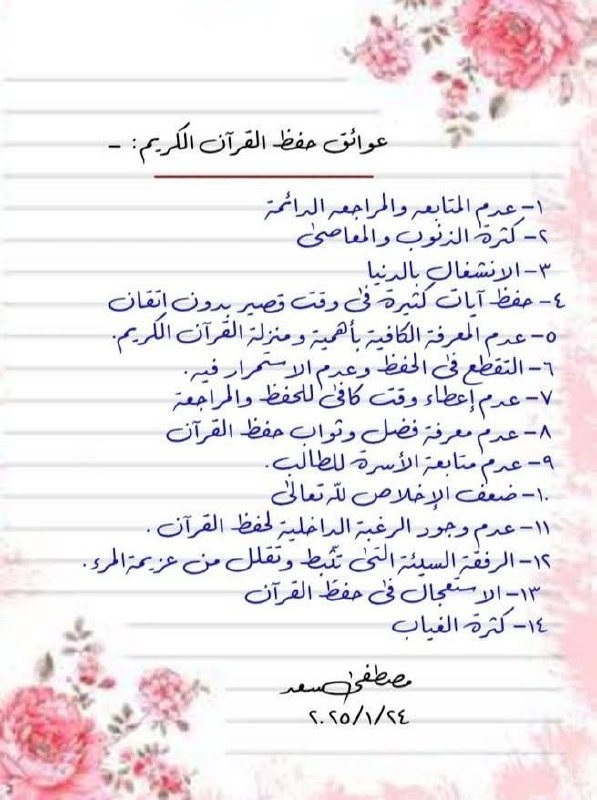 عوائق حفظ القرآن الكريم: -
١- عدم المتابعه والمراجعه الدائمة
٢- كثرة الذنوب والمعاصى
٣- الانشغال بالدنيا
٤- حفظ آيات كثيرة فى وقت قصير بدون اتقان
٥- عدم المعرفة الكافية بأهمية ومنزلة القرآن الكريم.
٦- التقطع فى الحفظ وعدم الاستمرار فيه.
٧- عدم إعطاء وقت كافى للحفظ والمراجعة
٨- عدم معرفة فضل وثواب حفظ القرآن
٩- عدم متابعة الأسرة للطالب.
١٠- ضعف الإخلاص لله تعالى
١١- عدم وجود الرغبة الداخلية لحفظ القرآن.
١٢- الرفقة السيئة التى تثبط وتقلل من عزيمة المرء.
١٣- الاستعجال فى حفظ القرآن
١٤- كثرة الغياب
مصطفى سعد
٢٠٢٥/١/٢٤